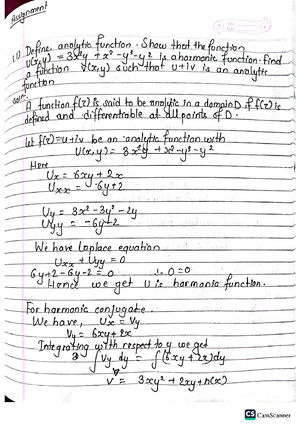 Assignment
1.) Define analytic function. Show that the function
U(x,y) = 3x²y + x² - y³ - y² is a harmonic function. Find
a function V(x,y) such that u+iv is an analytic
function
soln:
A function f(z) is said to be analytic in a domain D if f(z) is
defined and differentiable at all points of D.
Let f(z) = u+iv be an analytic function with
U(x,y) = 3x²y + x² - y³ - y²
Here
Ux = 6xy + 2x
Uxx = 6y+2
Uy = 3x² - 3y² - 2y
Uyy = -6y-2
We have Laplace equation
Uxx + Uyy = 0
6y+2-6y-2 = 0 ∴ 0=0
Hence we get U is harmonic function.
For harmonic conjugate.
We have, Ux = Vy
Vy = 6xy + 2x
Integrating with respect to y we get
∫ Vy dy = ∫(6xy + 2x)dy
V = 3xy² + 2xy + h(x)
CS CamScanner